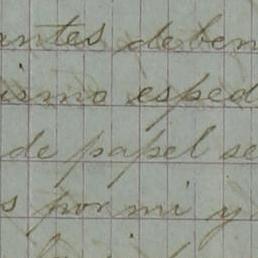 antes deben
ismo esped
de papel se
s por mi y